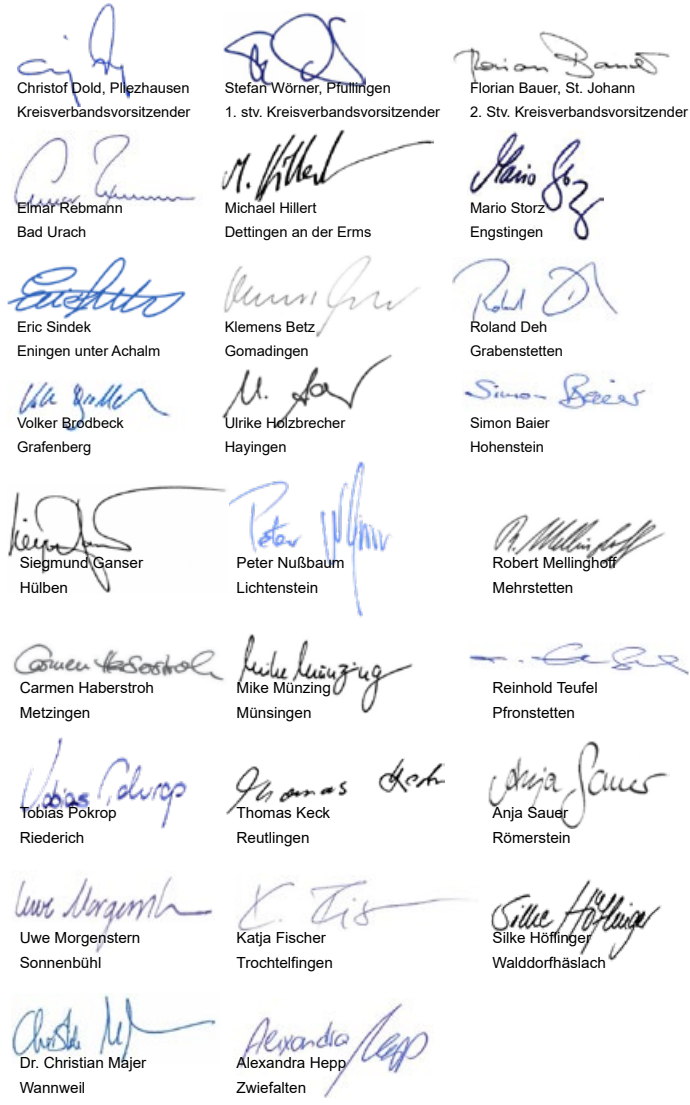 Christof Dold, Pliezhausen
Kreisverbandsvorsitzender
Stefan Wörner, Pfullingen
1. stv. Kreisverbandsvorsitzender
Florian Bauer, St. Johann
2. Stv. Kreisverbandsvorsitzender
Elmar Rebmann
Bad Urach
M. Hillert
Michael Hillert
Dettingen an der Erms
Mario Storz
Mario Storz
Engstingen
Eric Sindek
Eningen unter Achalm
Klemens Betz
Gomadingen
Roland Deh
Grabenstetten
Volker Brodbeck
Grafenberg
Ulrike Holzbrecher
Hayingen
Simon Baier
Simon Baier
Hohenstein
Siegmund Ganser
Hülben
Peter Nußbaum
Lichtenstein
R. Mellinghoff
Robert Mellinghoff
Mehrstetten
Carmen Haberstroh
Carmen Haberstroh
Metzingen
Mike Münzing
Mike Münzing
Münsingen
Reinhold Teufel
Pfronstetten
Tobias Pokrop
Tobias Pokrop
Riederich
Thomas Keck
Thomas Keck
Reutlingen
Anja Sauer
Anja Sauer
Römerstein
Uwe Morgenstern
Sonnenbühl
Katja Fischer
Trochtelfingen
Silke Höflinger
Silke Höflinger
Walddorfhäslach
Dr. Christian Majer
Wannweil
Alexandra Hepp
Alexandra Hepp
Zwiefalten